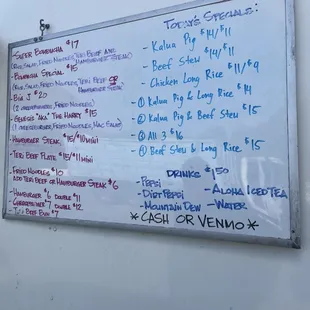 Super Bomucha $17
(Rice, Salad, Fried Noodles, Teri Beef AND Hamburger Steak)
Bomucha Special $15
(Rice, Salad, Fried Noodles, Teri Beef OR Hamburger Steak)
Big J $20
(2 , Fried Noodles)
Genesis "AKA" The Harry $15
(Fried Noodles, Mac Salad)
Hamburger Steak $15/10 mini
Teri Beef Plate $15/11 mini
Fried Noodles $10
Add Teri Beef or Hamburger Steak $6
Hamburger $6 Double $11
Cheeseburger $7 Double $12
Teri Beef Bun $7
Today's Specials:
- Kalua Pig $14/$11
- Beef Stew $14/$11
- Chicken Long Rice $11/$9
① Kalua Pig & Long Rice $14
② Kalua Pig & Beef Stew $15
③ All 3 $16
④ Beef Stew & Long Rice $15
Drinks $1.50
- Pepsi
- Diet Pepsi
- Mountain Dew
- Aloha Iced Tea
- Water
* CASH OR VENMO *